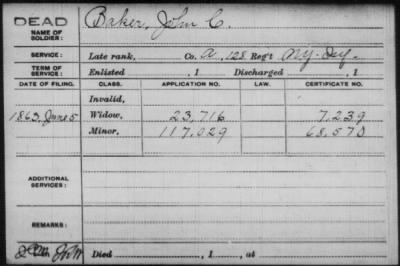 DEAD
NAME OF SOLDIER: Baker, John C.
SERVICE: Late rank, Co. A, 128 Reg't N.Y. Inf.
TERM OF SERVICE: Enlisted , 1 Discharged , 1
DATE OF FILING. CLASS. APPLICATION NO. LAW. CERTIFICATE NO.
Invalid,
1863, June 5 Widow, 23,716 7,239
Minor, 117,029 68,570
ADDITIONAL SERVICES:
REMARKS:
Died , 1 , at